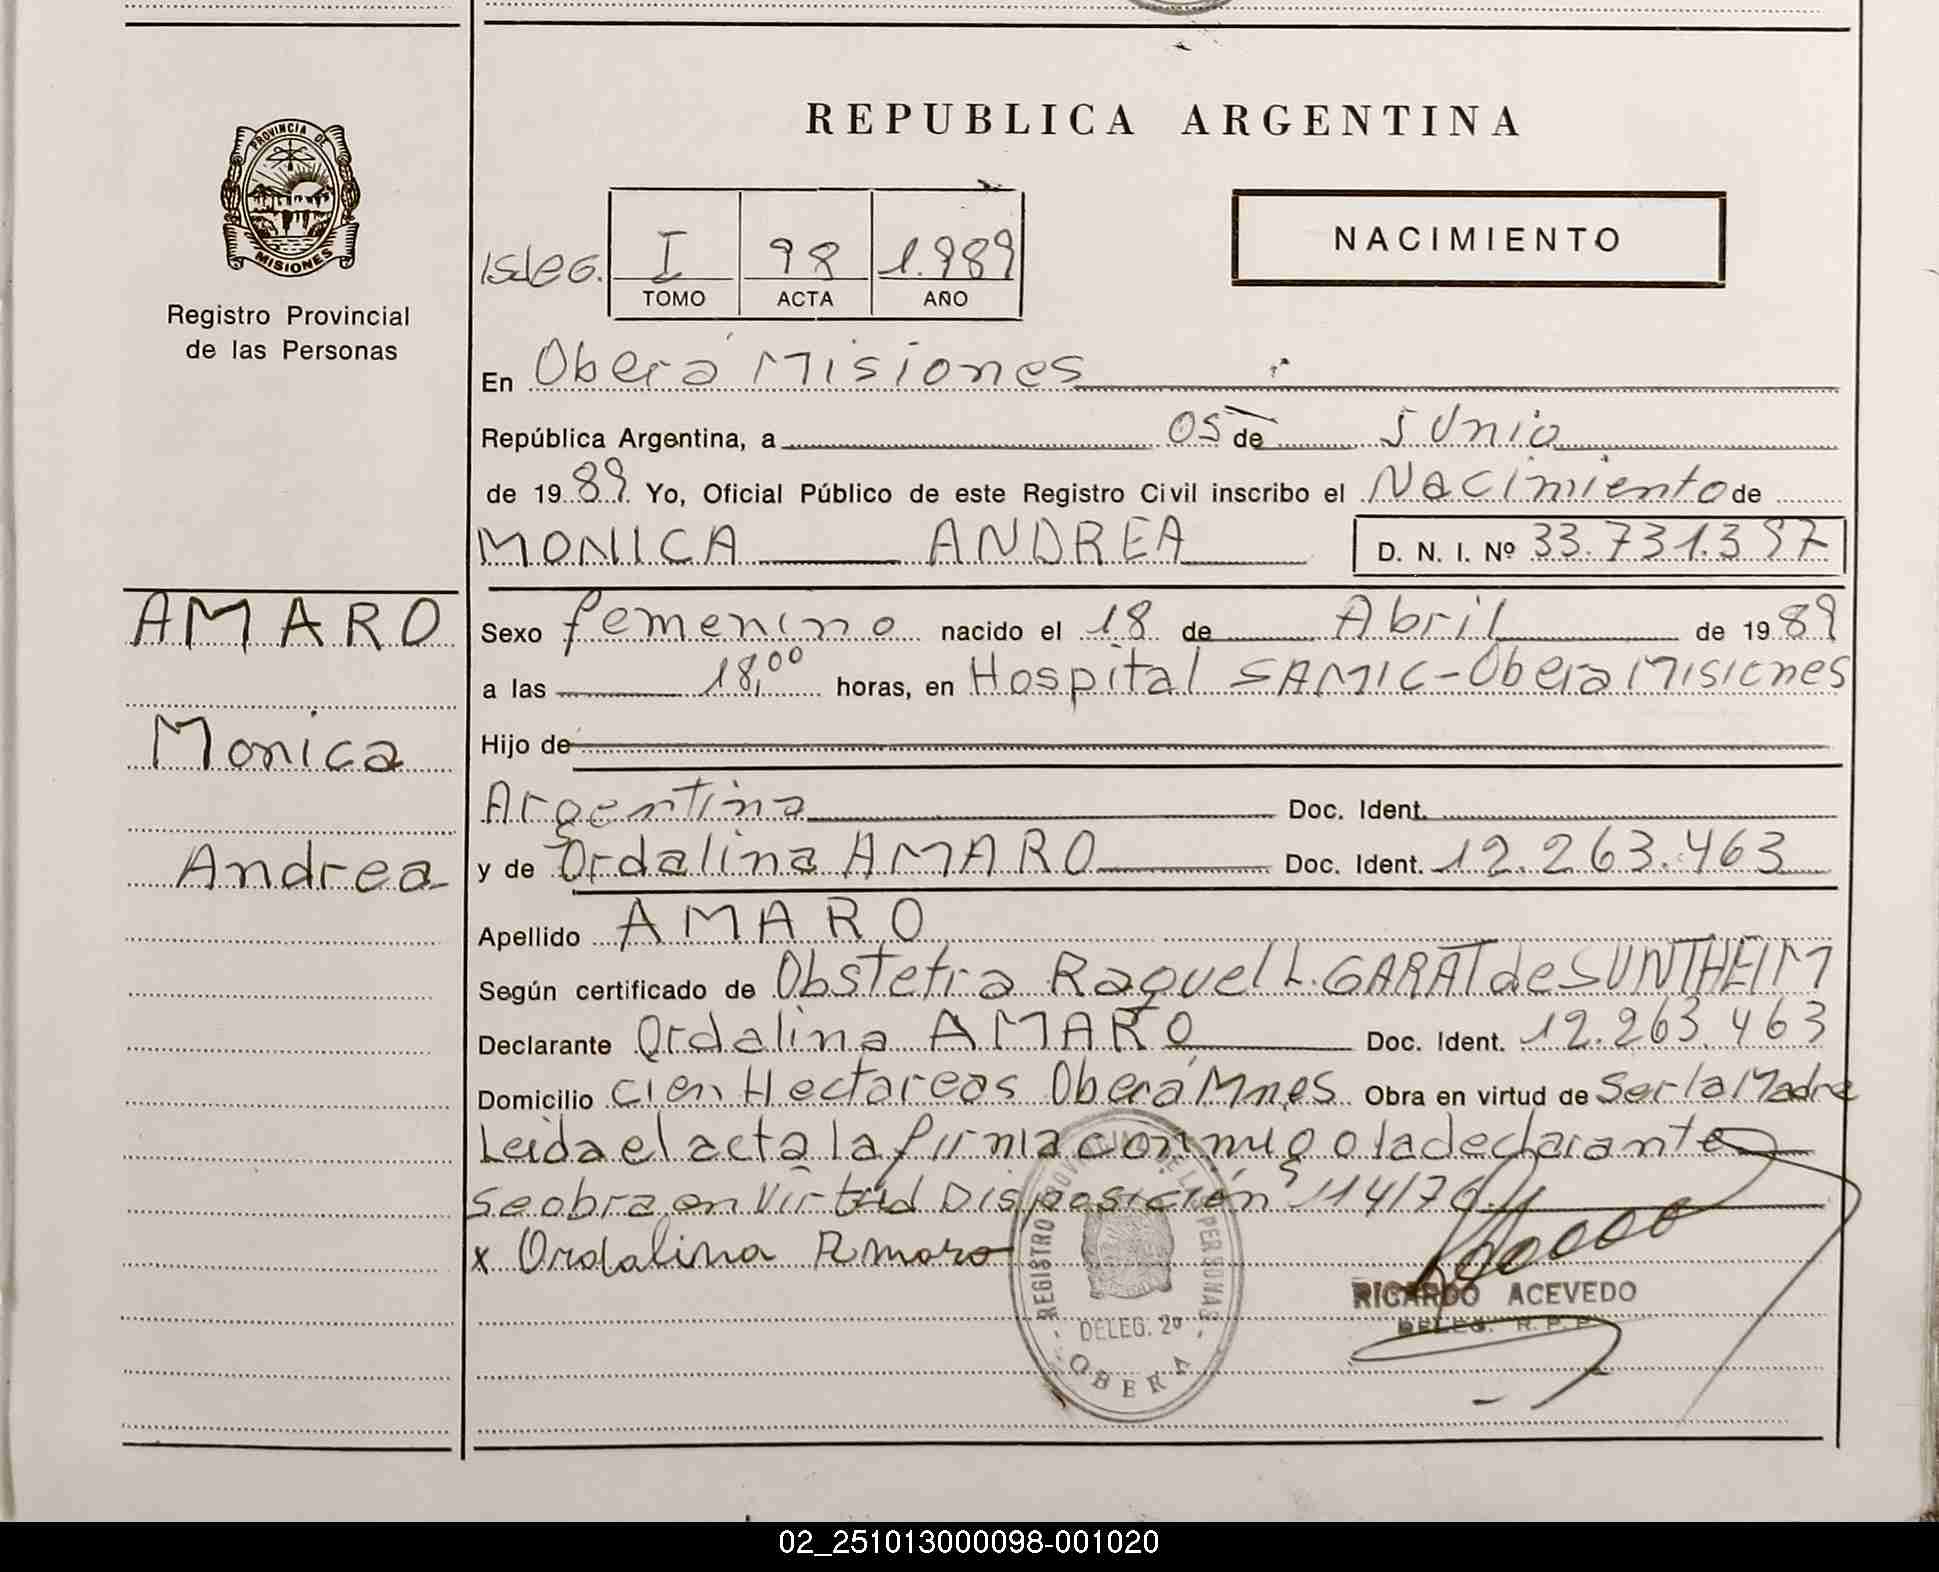 PROVINCIA DE
MISIONES
Registro Provincial
de las Personas
AMARO
Monica
Andrea
REPUBLICA ARGENTINA
I 98 1.989
TOMO ACTA AÑO
NACIMIENTO
En Oberá Misiones
República Argentina, a 05 de Junio
de 1989 Yo, Oficial Público de este Registro Civil inscribo el Nacimiento de
MONICA ANDREA D. N. I. Nº 33.731.397
Sexo femenino nacido el 18 de Abril de 1989
a las 18,00 horas, en Hospital SAMIC-Obera Misiones
Hijo de
Argentina Doc. Ident.
y de Ordalina AMARO Doc. Ident. 12.263.463
Apellido AMARO
Según certificado de Obstetra Raquel L. GARAT de SUNTHEIM
Declarante Ordalina AMARO Doc. Ident. 12.263.463
Domicilio cien Hectareas Oberá Mnes Obra en virtud de Ser la Madre
Leida el acta la firma conmigo la declarante
se obra en Virtud Disposición 114/76
x Ordalina Amaro
REGISTRO PROVINCIAL DE LAS PERSONAS
DELEG. 2º
OBERA
RICARDO ACEVEDO
DELEG. R. P. P.
02_251013000098-001020